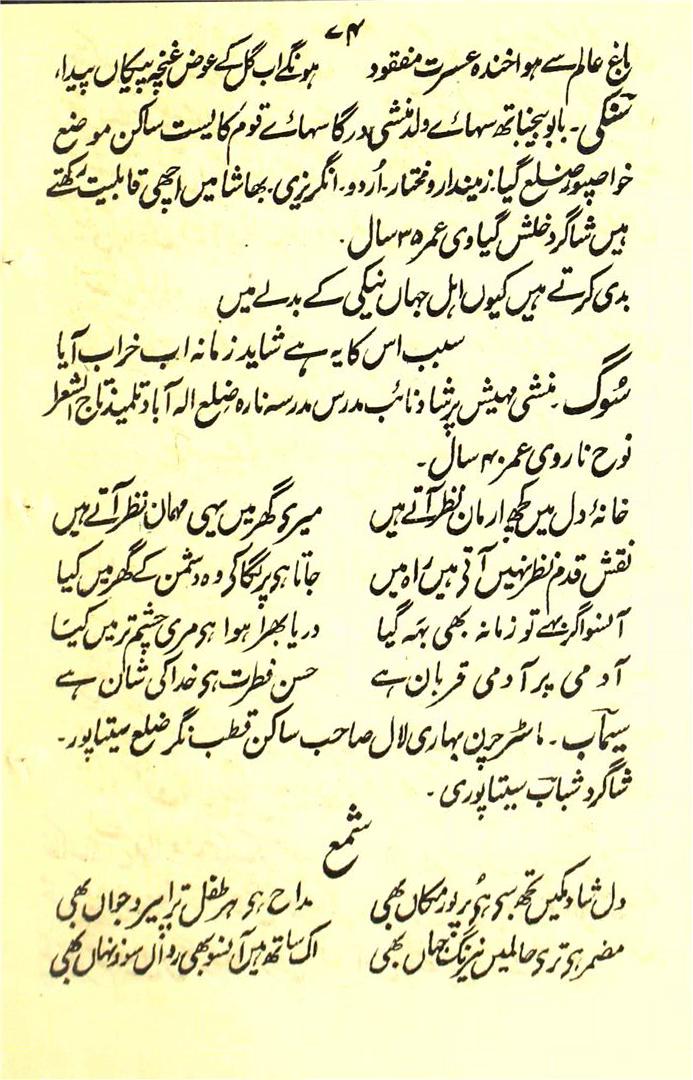 ۷۴
باغ عالم سے ہوا خندہ عسرت مفقود ہونگے اب گل کے عوض غنچہ پیکاں پیدا
بابو بیجناتھ سہائے ولد منشی درگا سہائے قوم کایست ساکن موضع
خواصپور ضلع گیا۔ زمیندار و مختار۔ اُردو۔ انگریزی۔ بھاشا میں اچھی قابلیت رکھتے
ہیں شاگرد خلش گیاوی عمر ۳۵ سال۔
بدی کرتے ہیں کیوں اہل جہاں نیکی کے بدلے میں
سبب اس کا یہ ہے شاید زمانہ اب خراب آیا
سُوگ۔ منشی مہیش پرشاد نائب مدرس مدرسہ نارہ ضلع الہ آباد تلمیذ تاج الشعرا
نوح ناروی عمر ۴۰ سال۔
خانۂ دل میں کچھ ارمان نظر آتے ہیں میری گھر میں یہی مہمان نظر آتے ہیں
نقش قدم نظر نہیں آتی ہیں راہ میں جاتا ہی پر لگا کی وہ دشمن کے گھر میں کیا
آنسو اگر بہے تو زمانہ بھی بہہ گیا دریا بھرا ہوا ہی مری چشم تر میں کیا
آدمی پر آدمی قربان ہے حسن فطرت ہی خدا کی شان ہے
سیماب۔ ماسٹر چرن بہاری لال صاحب ساکن قطب نگر ضلع سیتاپور۔
شاگرد شباب سیتاپوری۔
شمع
دل شاد مکیں تجھ سی ہی پر نور مکاں بھی مداح ہی ہر طفل ترا پیر و جواں بھی
مضمر ہی تری حالمیں نیرنگ جہاں بھی اک ساتھ ہیں آنسو بھی رواں سوز نہاں بھی